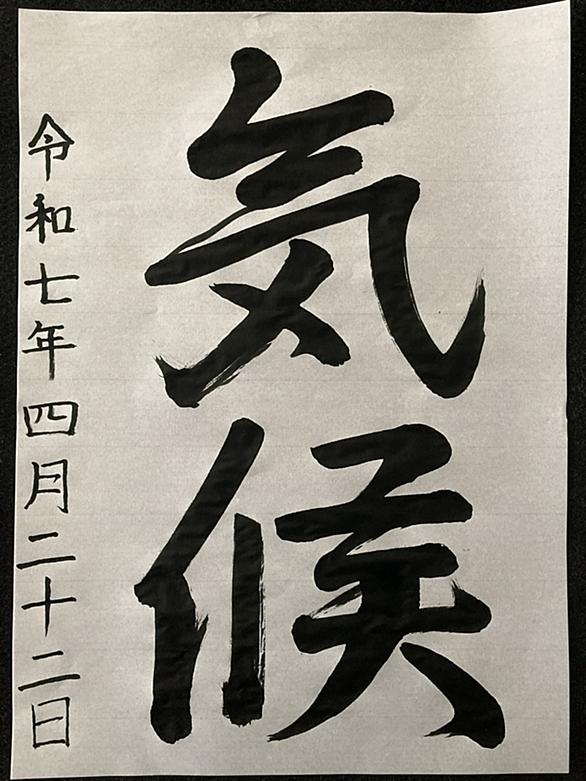 気候
令和七年四月二十二日